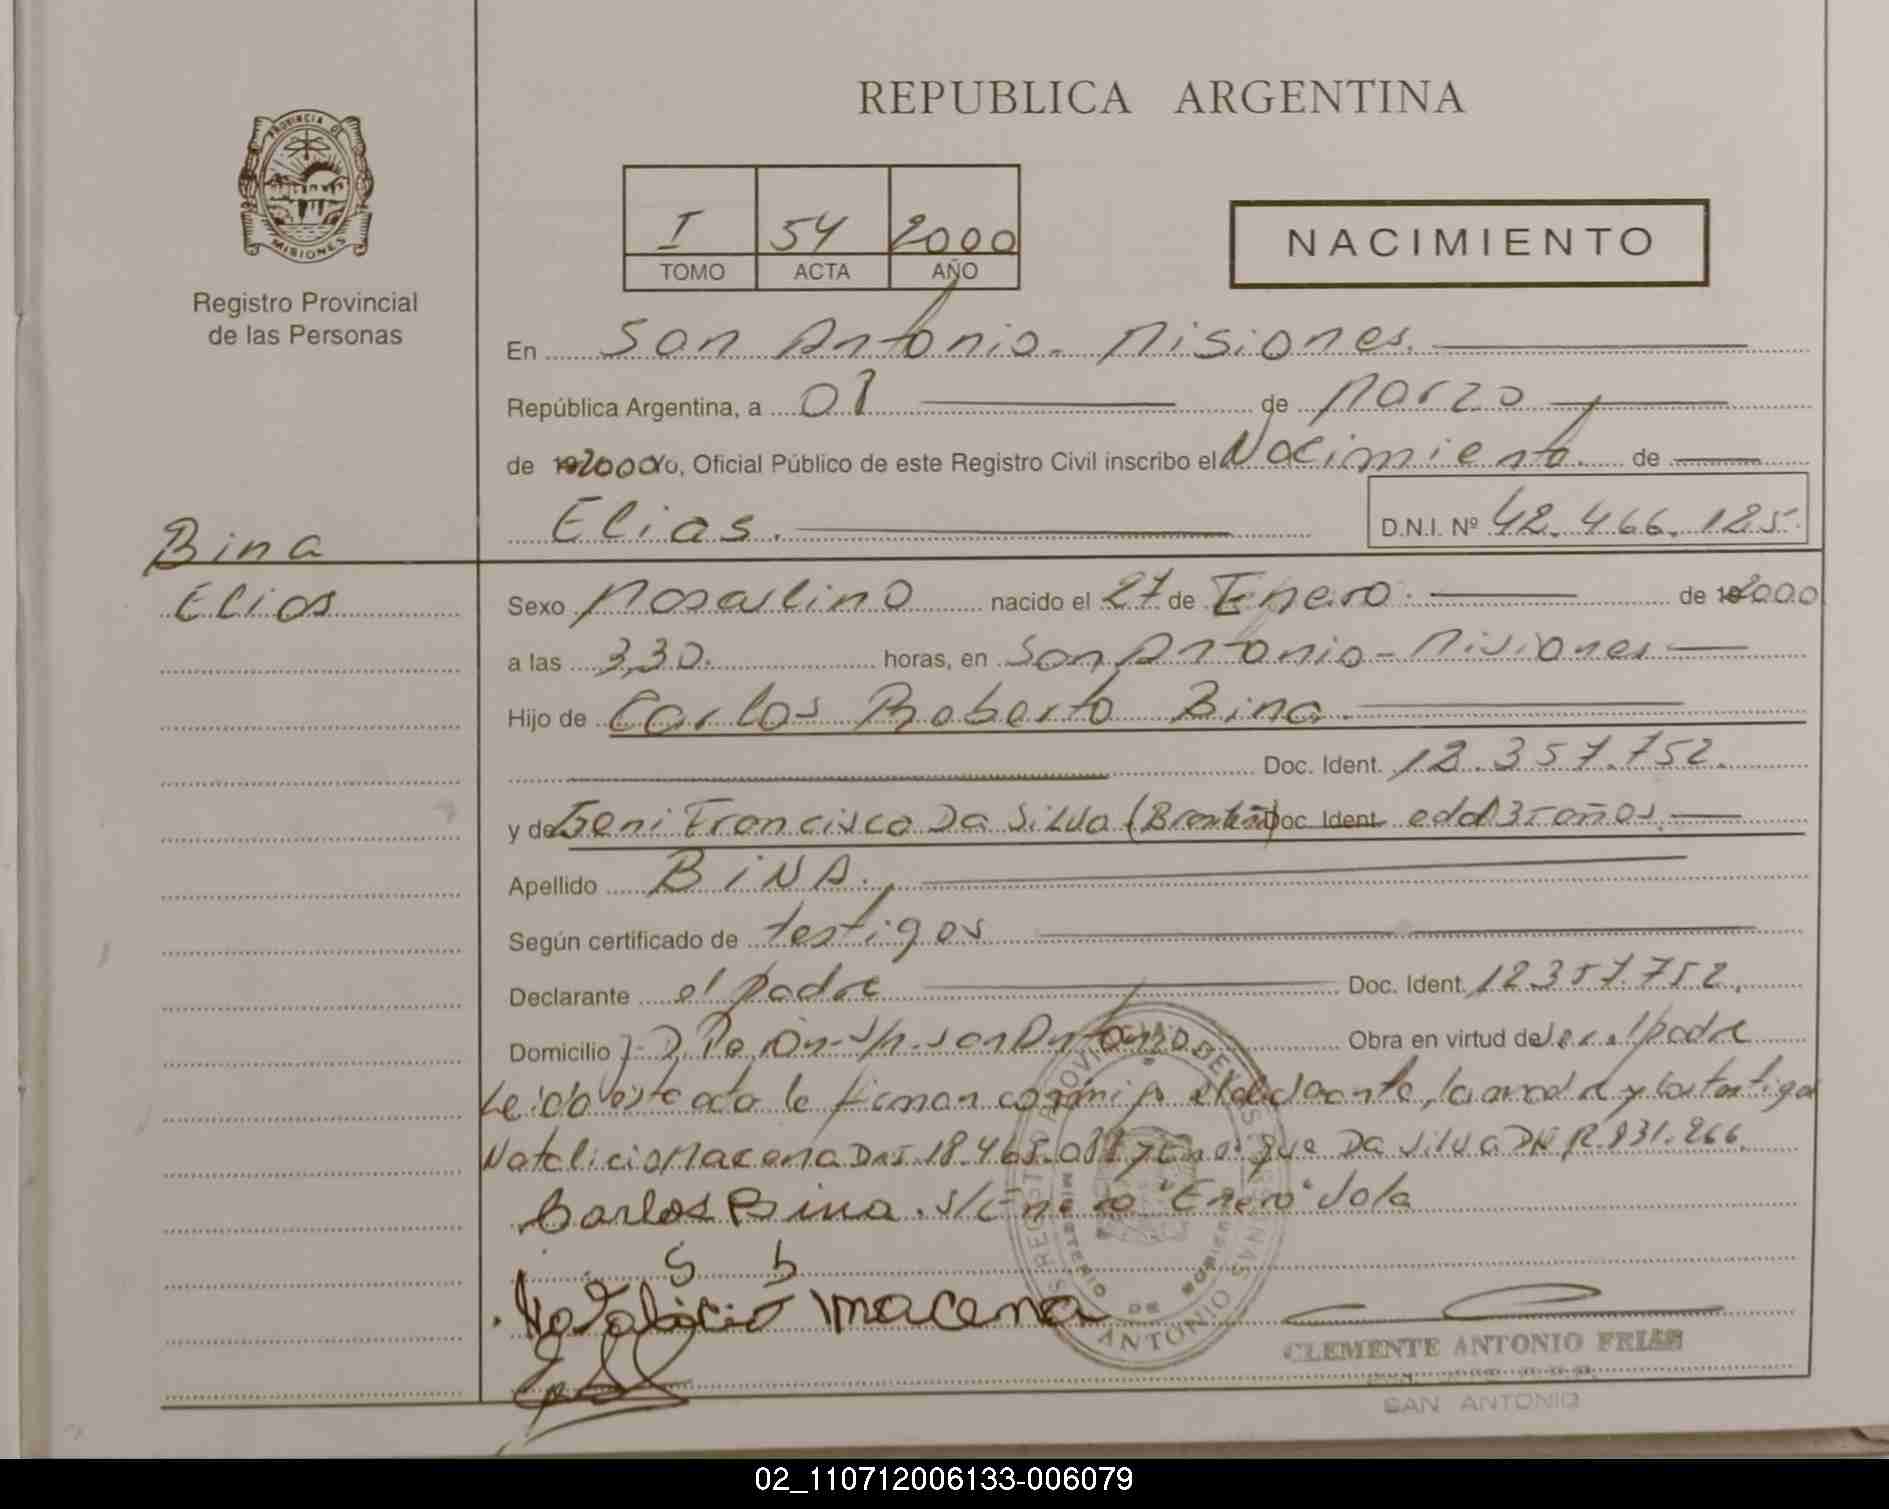 REPUBLICA ARGENTINA
PROVINCIA DE
MISIONES
Registro Provincial
de las Personas
I 54 2000
TOMO ACTA AÑO
NACIMIENTO
En San Antonio - Misiones.
República Argentina, a 01 de Marzo
de 2000 Yo, Oficial Público de este Registro Civil inscribo el Nacimiento de
Elias. D.N.I. Nº 42.466.125.
Bina
Elias
Sexo Masculino nacido el 27 de Enero de 2000
a las 3,30. horas, en San Antonio - Misiones
Hijo de Carlos Roberto Bina.
Doc. Ident. 12.357.752.
y de Francisca Da Silva Doc. Ident. edad 35 años.
Apellido BINA.
Según certificado de testigos
Declarante el padre Doc. Ident. 12.357.752.
Domicilio J. D. Perón - S/n. San Antonio Obra en virtud de ser el padre
Leido este acta la firman conmigo el declarante, la madre y los testigos
Natalicio Macena DNI. 18.468. Da Silva
Carlos Bina. "Enero" Vale
S b
Natalicio macena
REGISTRO PROVINCIAL DE LAS PERSONAS
MINISTERIO DE GOBIERNO
SAN ANTONIO
CLEMENTE ANTONIO FRIAS
SAN ANTONIO
02_110712006133-006079